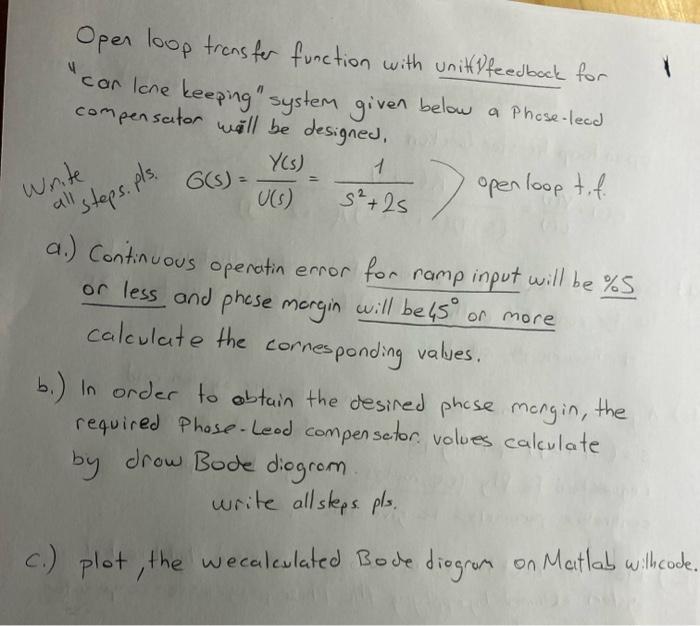 Open loop transfer function with unit(1)feedback for
"car lane keeping" system given below a Phase-lead
compensator will be designed,
Write all steps. pls. G(s) = Y(s)/U(s) = 1/(s² + 2s) ) open loop t.f.
a.) Continuous operatin error for ramp input will be %5
or less and phase margin will be 45° or more
calculate the corresponding values.
b.) In order to obtain the desired phase margin, the
required Phase-Lead compensator values calculate
by draw Bode diagram.
write all steps pls.
c.) plot, the wecalculated Bode diagram on Matlab withcode.